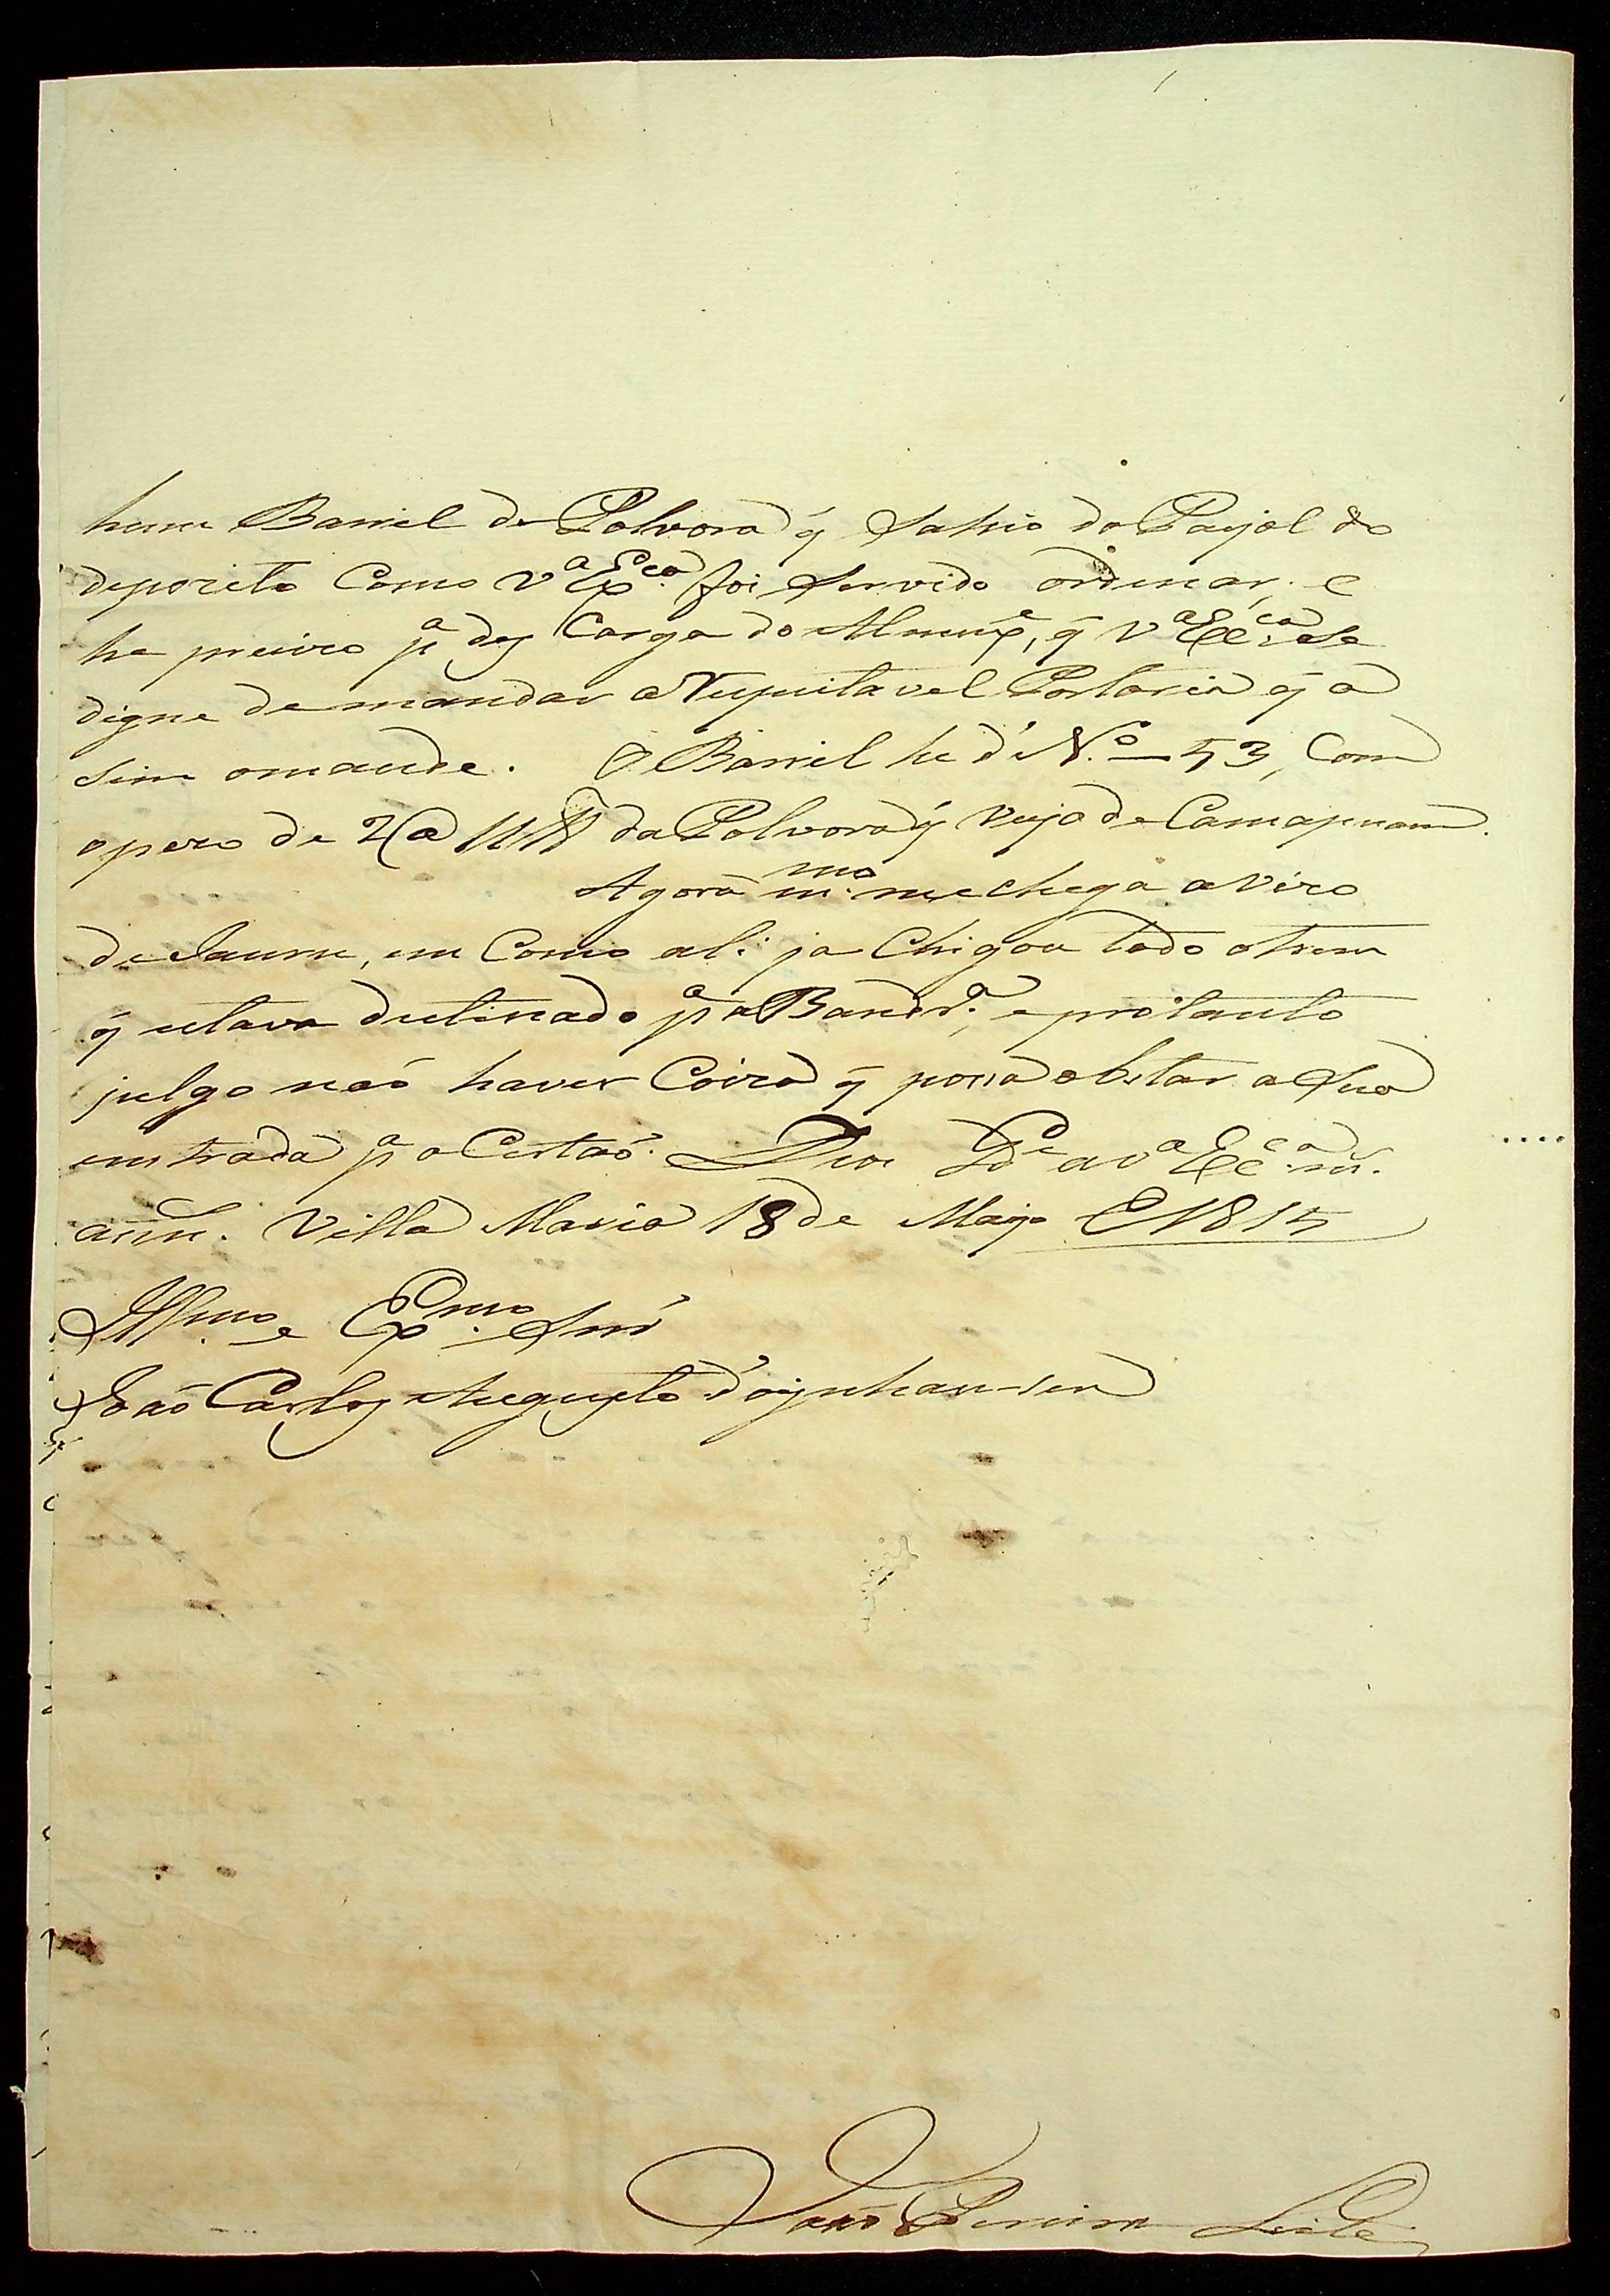 hum Barril de Polvora q̃ Sahio do Payol do
deposito Como V.ª Ex.ca foi Servido ordenar, e
he preciso p.ª des Carga do Almox.e, q̃ V.ª Ex.ca Se
digne demandar a Respeitavel Portaria q̃ a
Sim omande. O Barril he dê N.º 53, Com
opezo de da Polvora q̃ veyo de Camapuam.
Agora m.mo me chega aviso
de Jauru, em Como ali ja Chegou todo otrem
q̃ estava destinado p.ª aBandr.ª, e protanto
julgo naõ haver Coiza q̃ possa obstar a Sua
entrada p.ª o Certaõ. Deos G.de a V.ª Ex.ca m.s
ann.s Villa Maria 18 de Mayo E 1815
Ill.mo e Ex.mo Snr'
Joaõ Carlos Augusto d'Oeynhausen
Joaõ Pereira Leite